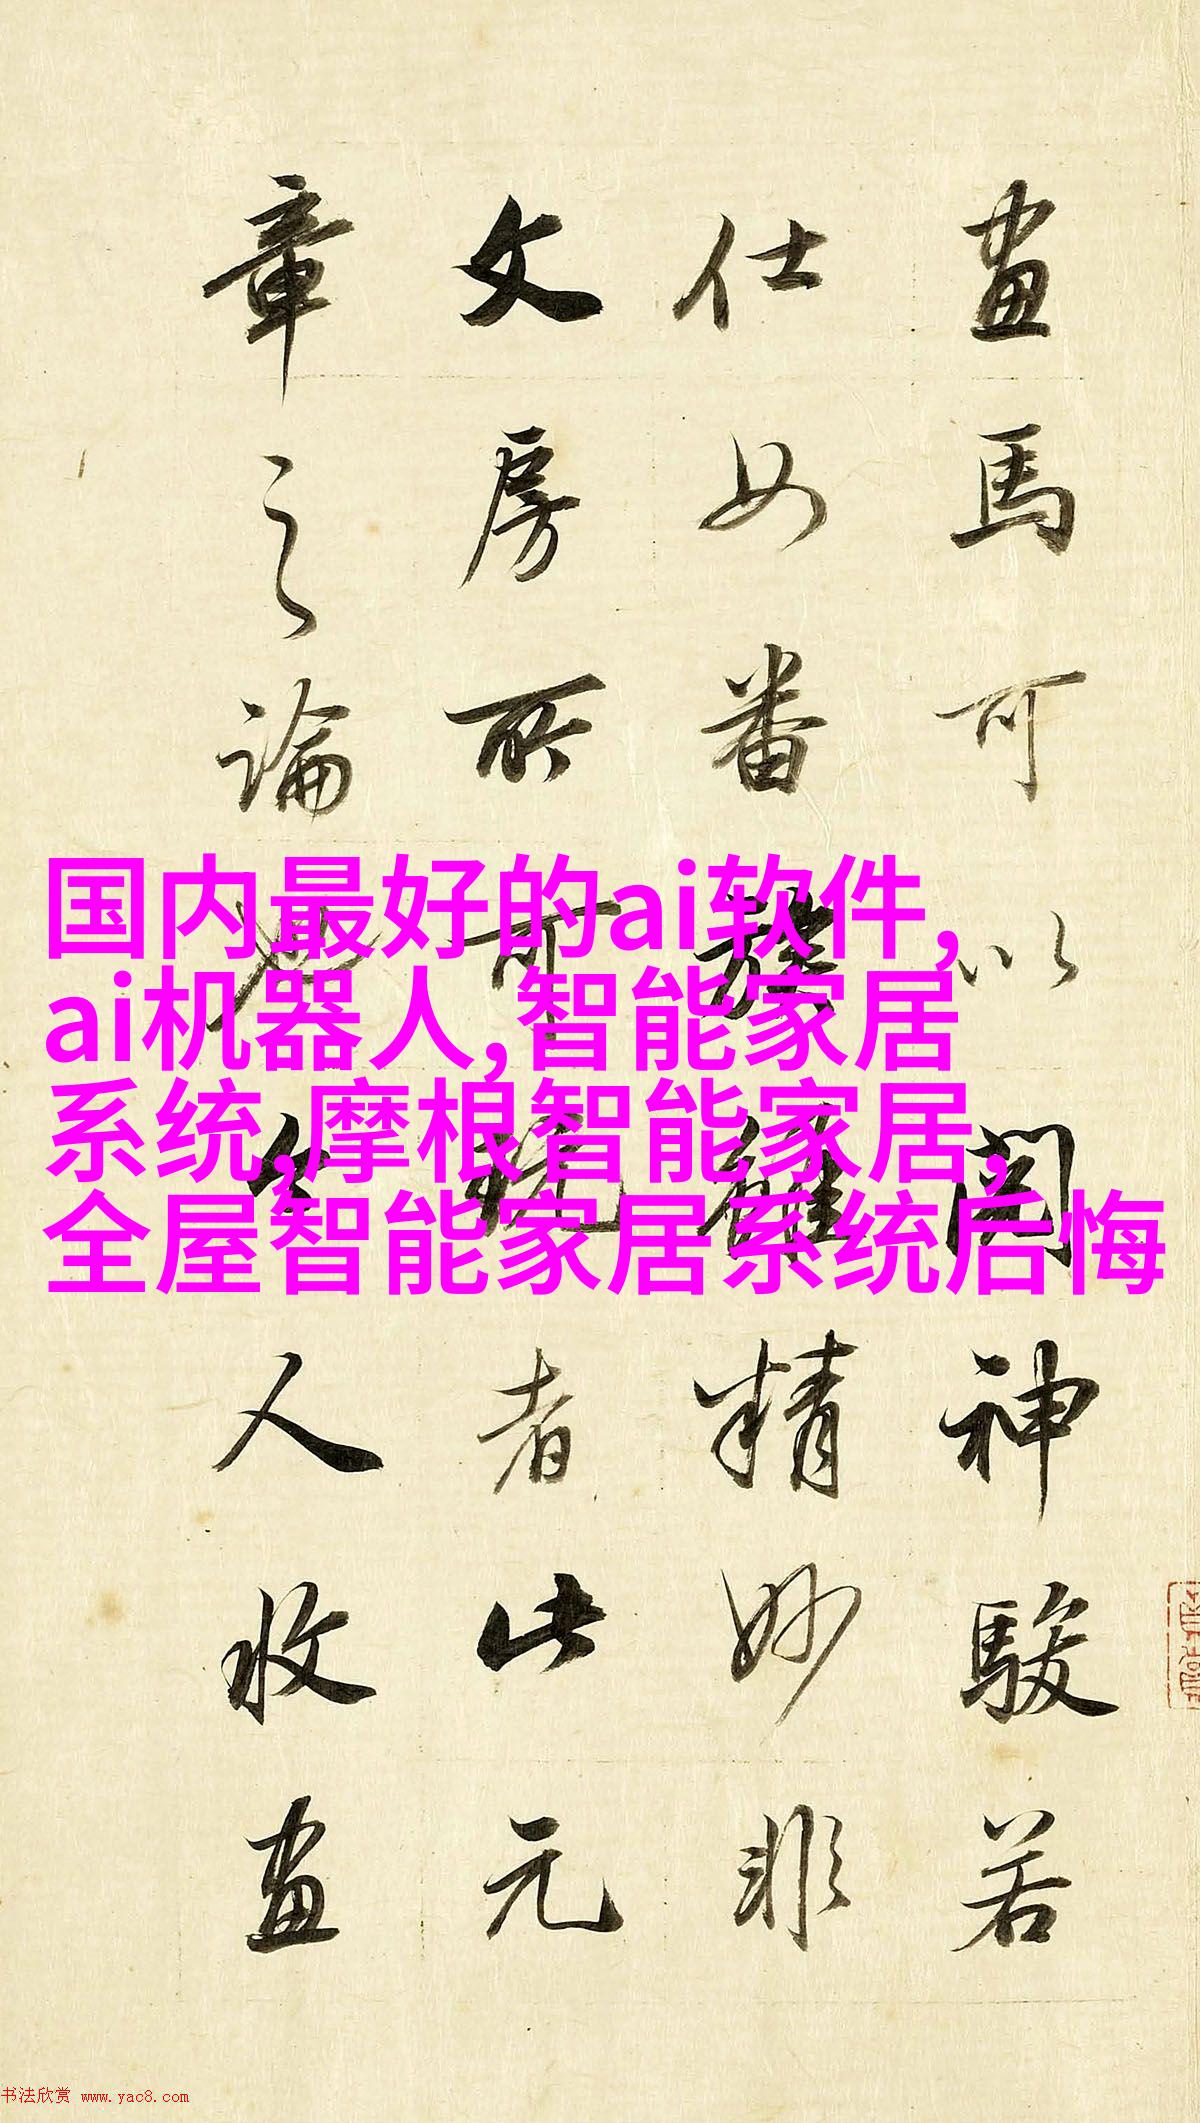 畫馬可以閱神駿若
仕女番雖精妙非
文房所可玩者此元
章之論也今人收畫
国内最好的ai软件,
ai机器人,智能家居
系统,摩根智能家居,
全屋智能家居系统后悔
书法欣赏 www.yac8.com